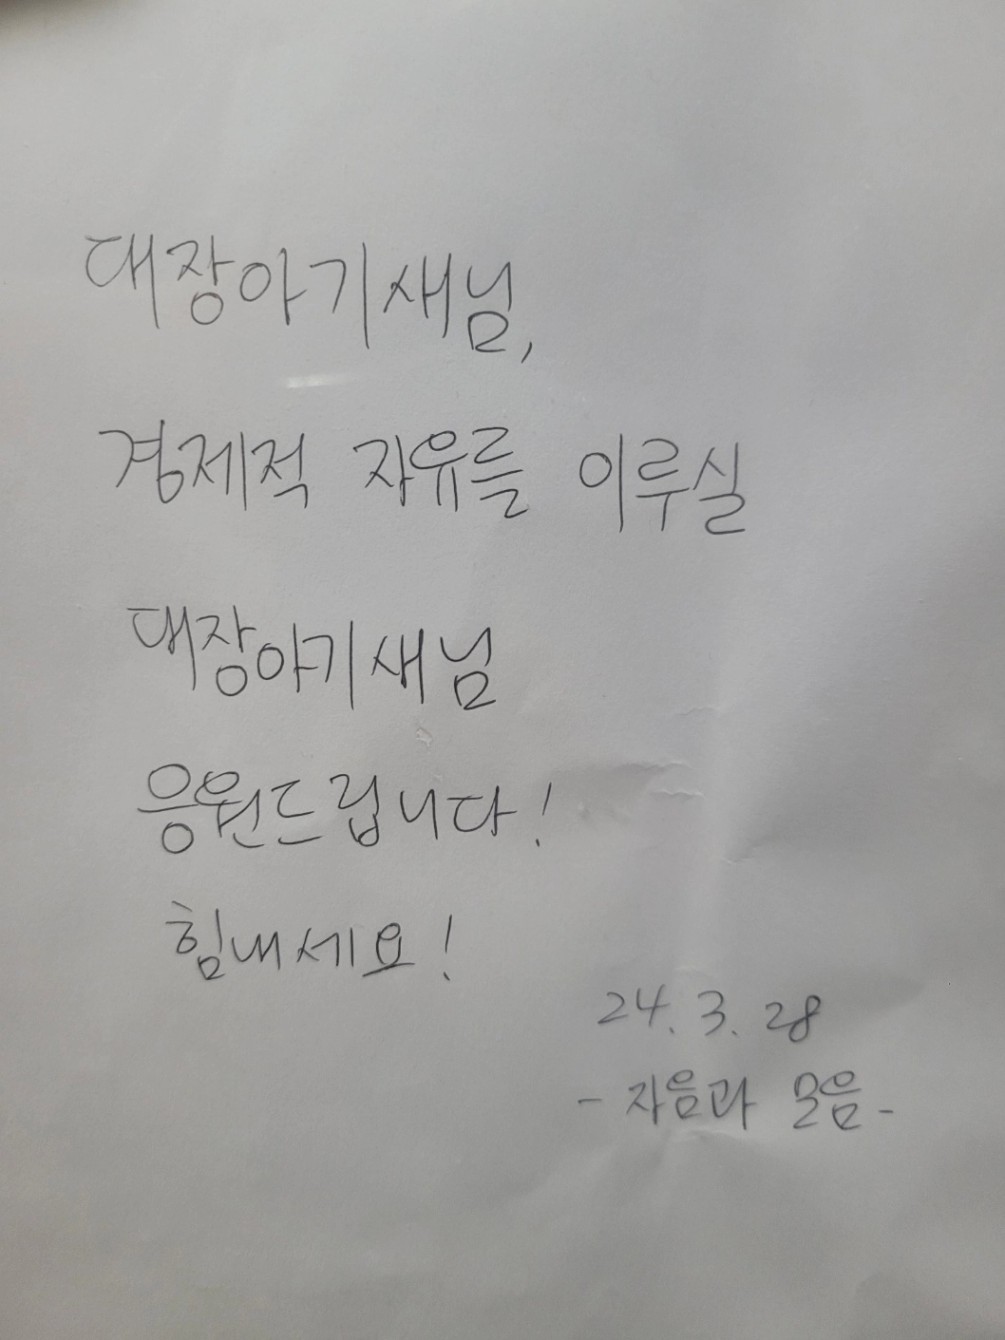 대장아기새님,
경제적 자유를 이루실
대장아기새님
응원드립니다!
힘내세요!
24. 3. 28
- 자음과 모음 -